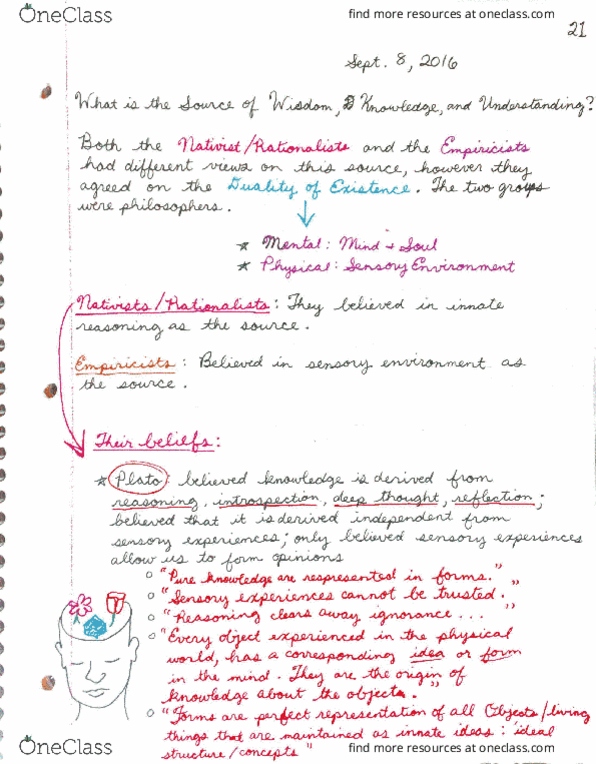 OneClass
find more resources at oneclass.com
21
Sept. 8, 2016
What is the Source of Wisdom, & Knowledge, and Understanding?
Both the Nativist/Rationalists and the Empiricists
had different views on this source, however they
agreed on the Duality of Existence. The two groups
were philosophers.
★ Mental: Mind + Soul
★ Physical: Sensory Environment
Nativists/Rationalists: They believed in innate
reasoning as the source.
Empiricists: Believed in sensory environment as
the source.
Their beliefs:
★ Plato: believed knowledge is derived from
reasoning, introspection, deep thought, reflection;
believed that it is derived independent from
sensory experiences; only believed sensory experiences
allow us to form opinions
○ "Pure knowledge are respresented in forms."
○ "Sensory experiences cannot be trusted."
○ "Reasoning clears away ignorance..."
○ "Every object experienced in the physical
world, has a corresponding idea or form
in the mind. They are the origin of
knowledge about the objects."
○ "Forms are perfect representation of all Objects/living
things that are maintained as innate ideas: ideal
structure/concepts"
OneClass
find more resources at oneclass.com